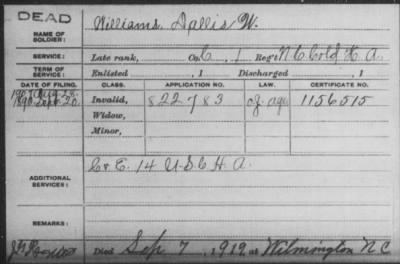 DEAD
Williams, Dallis W.
NAME OF SOLDIER:
SERVICE: Late rank, Co. C, 1 Reg't N C Cold H. A.
TERM OF SERVICE: Enlisted , 1 Discharged , 1
DATE OF FILING. CLASS. APPLICATION NO. LAW. CERTIFICATE NO.
1907 Aug 28. Invalid, 822783 of age 1156515
1890 Sept 20.
Widow,
Minor,
C & E. 14 U.S.C.H.A.
ADDITIONAL SERVICES:
REMARKS:
Died Sep 7, 1919, at Wilmington N C